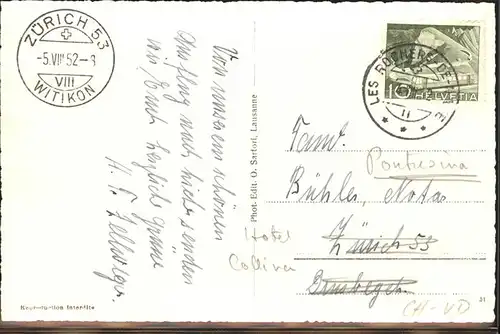 ZÜRICH 53
-5.VIII 52-8
VIII
WITIKON
Von unserem schönen
Ausflug nach hier senden
wir Euch herzliche Grüsse
H.
Phot.-Edit. O. Sartori, Lausanne
10 HELVETIA
LES ROCHERS-DE-
Fam.
Pontresina
Bühler, Notar
Hotel
Zürich 53
Collina
CH-VD
Reproduction interdite
31